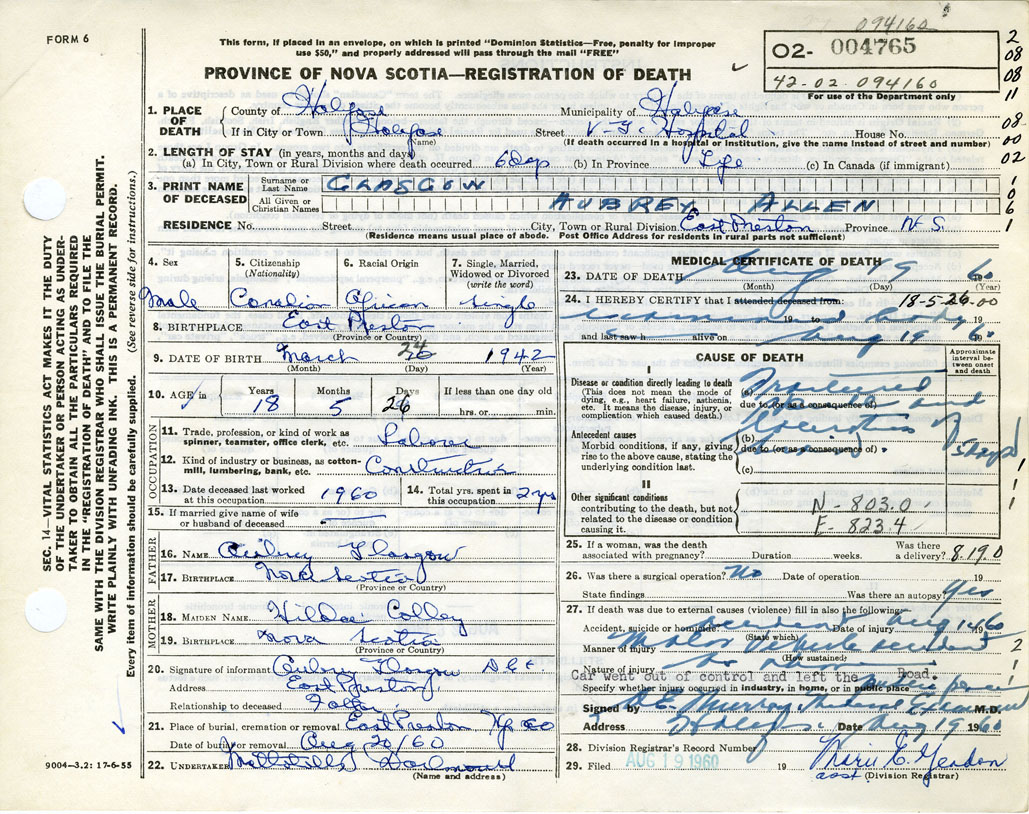 094160
FORM 6
This form, if placed in an envelope, on which is printed "Dominion Statistics—Free, penalty for improper
use $50," and properly addressed will pass through the mail "FREE"
O2- 004765
42-02-094160
For use of the Department only
2 08 08 11 08 00 02
PROVINCE OF NOVA SCOTIA—REGISTRATION OF DEATH
SEC. 14—VITAL STATISTICS ACT MAKES IT THE DUTY
OF THE UNDERTAKER OR PERSON ACTING AS UNDER-
TAKER TO OBTAIN ALL THE PARTICULARS REQUIRED
IN THE "REGISTRATION OF DEATH" AND TO FILE THE
SAME WITH THE DIVISION REGISTRAR WHO SHALL ISSUE THE BURIAL PERMIT.
WRITE PLAINLY WITH UNFADING INK. THIS IS A PERMANENT RECORD.
Every item of information should be carefully supplied. (See reverse side for instructions.)
1. PLACE OF DEATH County of Halifax Municipality of Halifax
If in City or Town Halifax Street V-G. Hospital House No.
(Name) (If death occurred in a hospital or institution, give the name instead of street and number)
2. LENGTH OF STAY (in years, months and days)
(a) In City, Town or Rural Division where death occurred 6 days (b) In Province Life (c) In Canada (if immigrant)
3. PRINT NAME OF DECEASED Surname or Last Name GLASGOW
All Given or Christian Names AUBREY ALLEN
RESIDENCE No. Street City, Town or Rural Division East Preston Province N.S.
(Residence means usual place of abode. Post Office Address for residents in rural parts not sufficient)
4. Sex Male
5. Citizenship (Nationality) Canadian
6. Racial Origin African
7. Single, Married, Widowed or Divorced (write the word) Single
8. BIRTHPLACE East Preston
(Province or Country)
9. DATE OF BIRTH March 1942
(Month) (Day) (Year)
10. AGE in Years 18 Months 5 Days 26 If less than one day old hrs. or min.
OCCUPATION
11. Trade, profession, or kind of work as spinner, teamster, office clerk, etc. Laborer
12. Kind of industry or business, as cotton-mill, lumbering, bank, etc. Construction
13. Date deceased last worked at this occupation 1960 14. Total yrs. spent in this occupation 2 yrs
15. If married give name of wife or husband of deceased
FATHER
16. NAME Aubrey Glasgow
17. BIRTHPLACE Nova Scotia
(Province or Country)
MOTHER
18. MAIDEN NAME Hilda Colley
19. BIRTHPLACE Nova Scotia
(Province or Country)
20. Signature of informant Aubrey Glasgow
Address East Preston
Relationship to deceased Father
21. Place of burial, cremation or removal East Preston
Date of burial or removal Aug 20/60
22. UNDERTAKER Dartmouth
(Name and address)
9004—3.2: 17-6-55
MEDICAL CERTIFICATE OF DEATH
23. DATE OF DEATH Aug 19 60
(Month) (Day) (Year)
24. I HEREBY CERTIFY that I attended deceased from: 18-5-26-00
examined body 19 to 19
and last saw h alive on Aug 19 60
CAUSE OF DEATH
Approximate interval between onset and death
I
Disease or condition directly leading to death
(This does not mean the mode of dying, e.g., heart failure, asthenia, etc. It means the disease, injury, or complication which caused death.)
(a) Fractured
due to (or as a consequence of)
Antecedent causes
Morbid conditions, if any, giving rise to the above cause, stating the underlying condition last.
(b)
due to (or as a consequence of)
(c)
5 days
II
Other significant conditions
contributing to the death, but not related to the disease or condition causing it.
N-803.0
E-823.4
25. If a woman, was the death associated with pregnancy? Duration weeks. Was there a delivery? 819.0
26. Was there a surgical operation? No Date of operation 19
State findings Was there an autopsy? Yes
27. If death was due to external causes (violence) fill in also the following:
Accident, suicide or homicide Accident Date of injury Aug 14 60
(State which)
Manner of injury Motor Vehicle accident
(How sustained)
Nature of injury
Car went out of control and left the Road.
Specify whether injury occurred in industry, in home, or in public place
Signed by M.D.
Address Halifax Date Aug 19 1960
28. Division Registrar's Record Number
29. Filed AUG 19 1960 19
(Division Registrar)